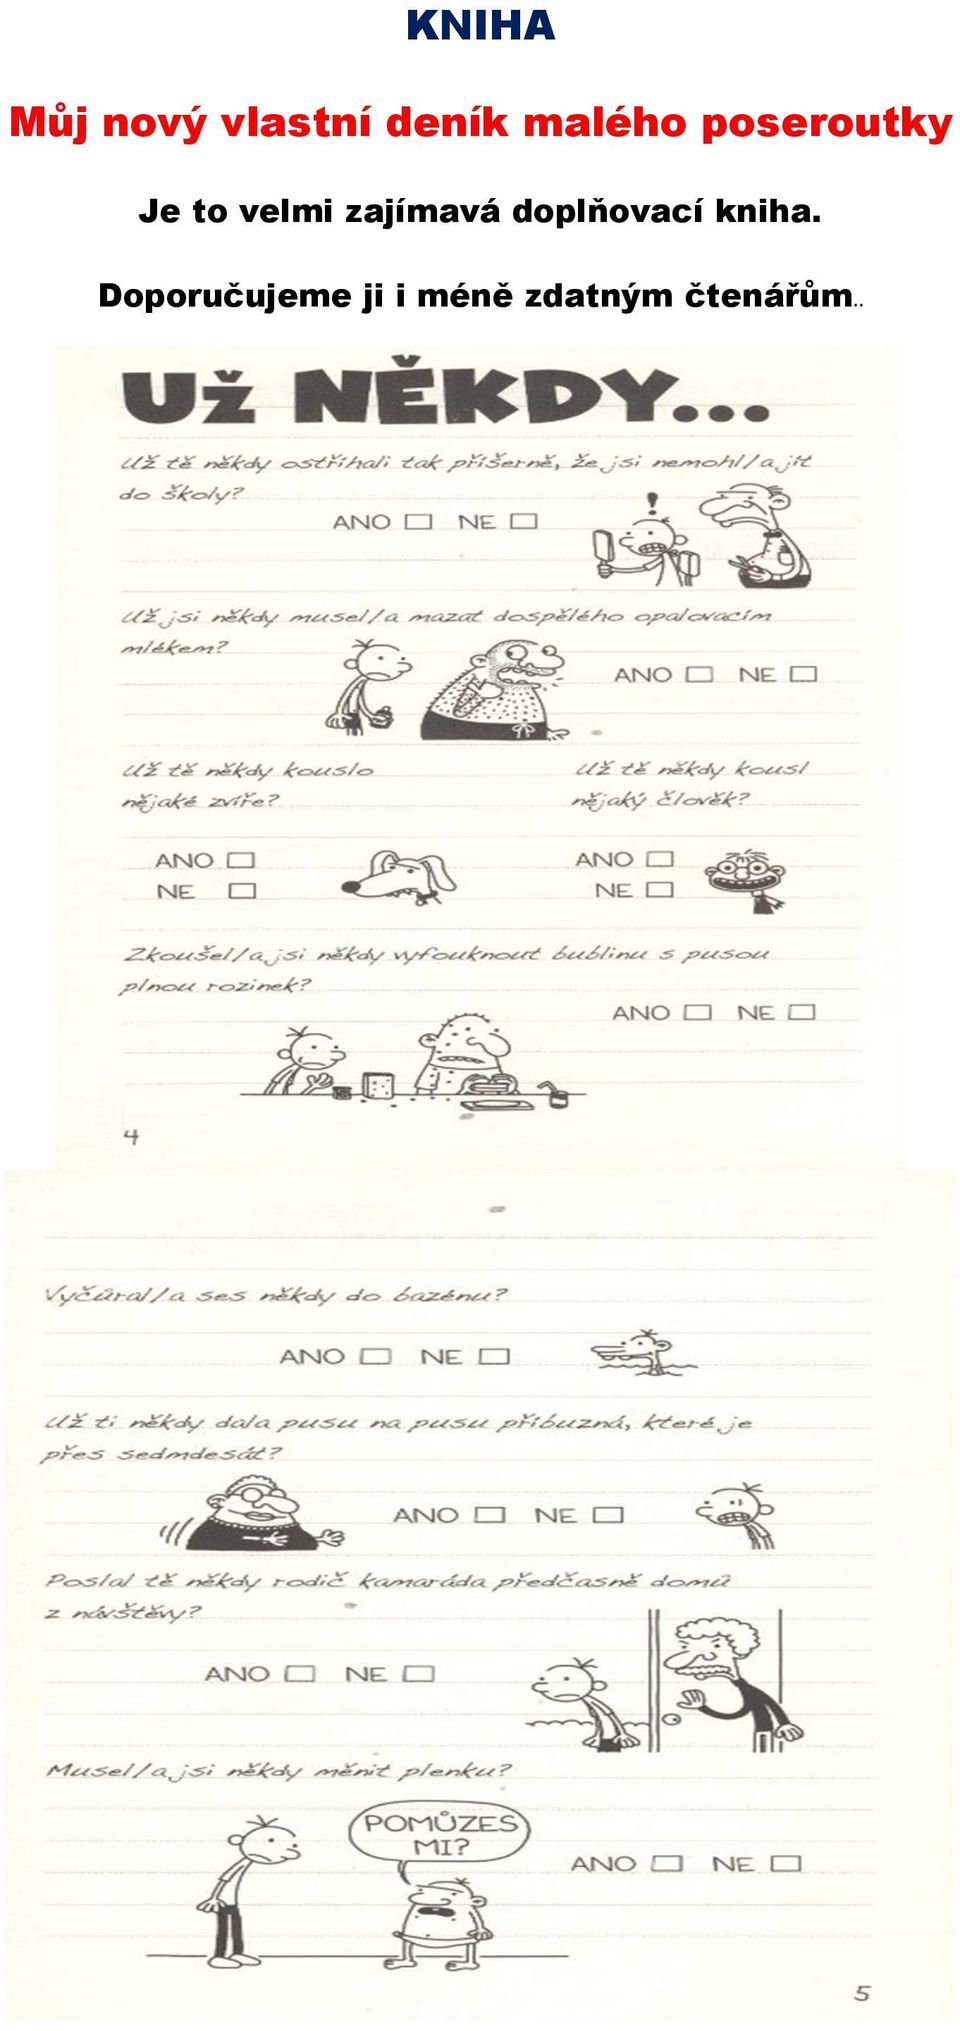 KNIHA
Můj nový vlastní deník malého poseroutky
Je to velmi zajímavá doplňovací kniha.
Doporučujeme ji i méně zdatným čtenářům..
Už NĚKDY...
Už tě někdy ostříhali tak příšerně, že jsi nemohl/a jít
do školy?
ANO NE
!
Už jsi někdy musel/a mazat dospělého opalovacím
mlékem?
ANO NE
Už tě někdy kouslo
nějaké zvíře?
ANO
NE
Už tě někdy kousl
nějaký člověk?
ANO
NE
Zkoušel/a jsi někdy vyfouknout bublinu s pusou
plnou rozinek?
ANO NE
4
Vyčůral/a ses někdy do bazénu?
ANO NE
Už ti někdy dala pusu na pusu příbuzná, které je
přes sedmdesát?
ANO NE
Poslal tě někdy rodič kamaráda předčasně domů
z návštěvy?
ANO NE
Musel/a jsi někdy měnit plenku?
POMŮZES
MI?
ANO NE
5